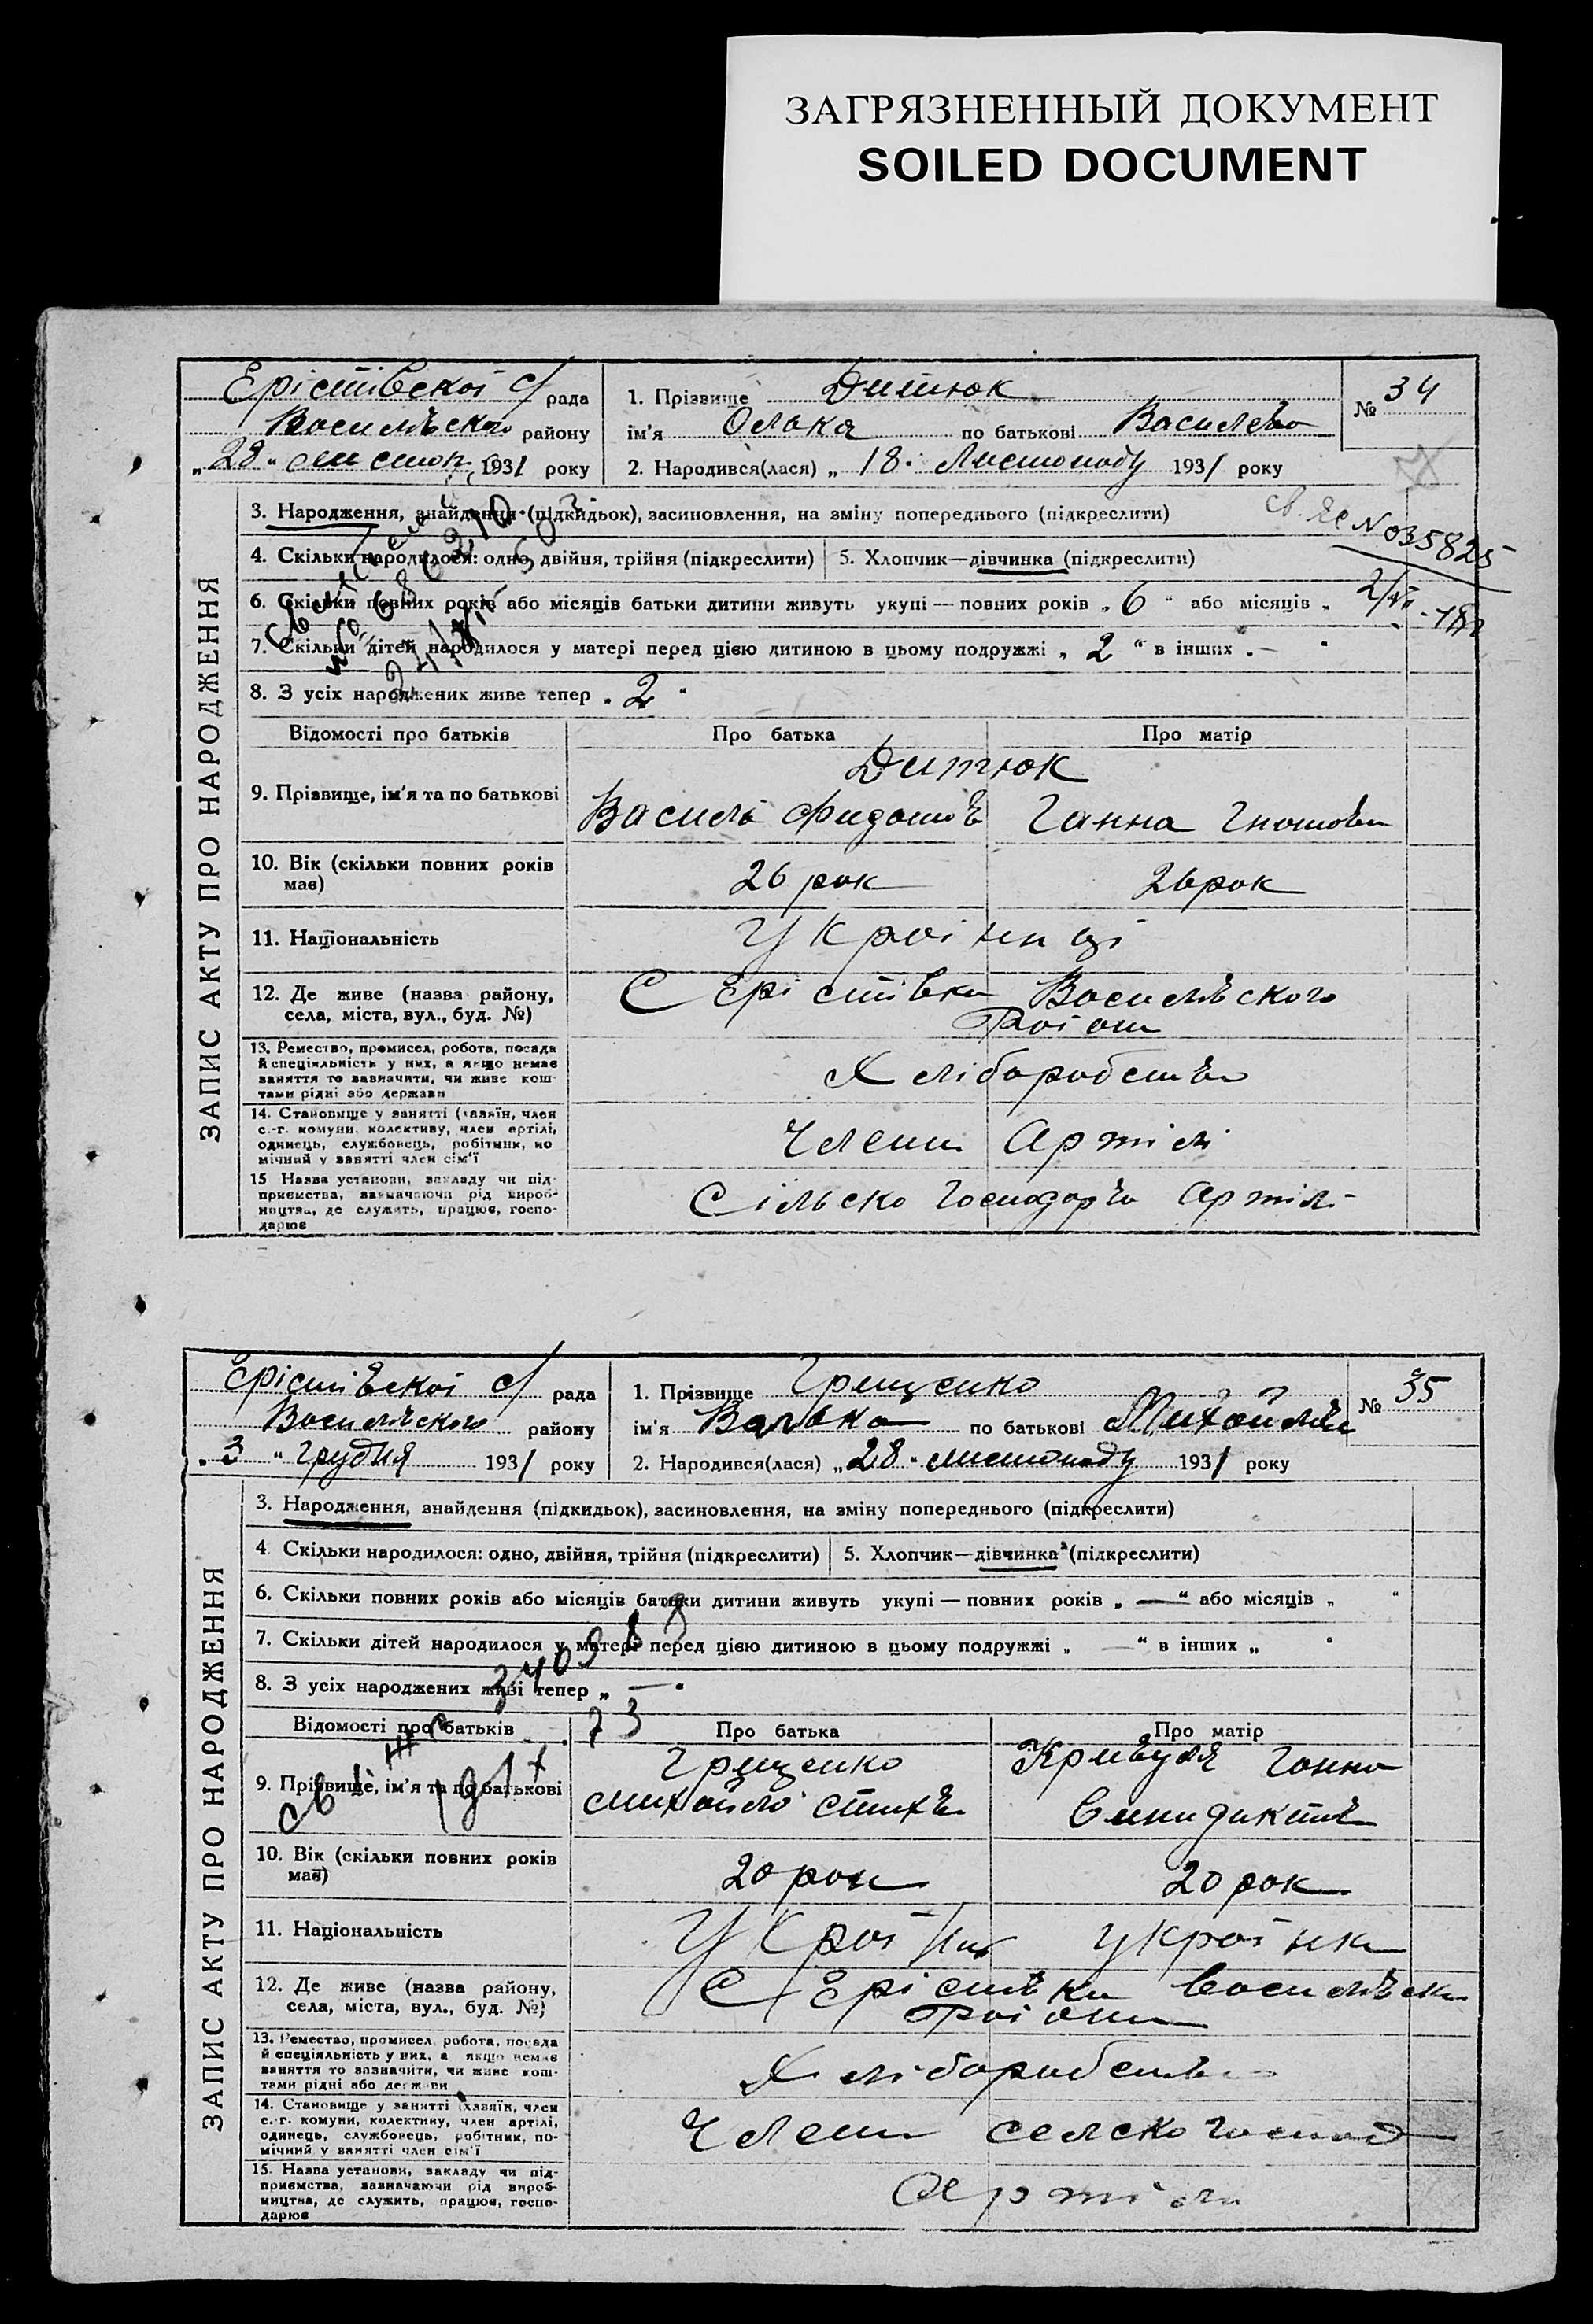 ЗАГРЯЗНЕННЫЙ ДОКУМЕНТ
SOILED DOCUMENT
Ерістівскоі с/ рада
Васильвского району
„28“ листоп 1931 року
1. Прізвище Дитюк
ім'я Олька по батькові Василева
№ 34
2. Народився(лася) „18. Листопаду 1931 року
св. ЯС N 035825
ЗАПИС АКТУ ПРО НАРОДЖЕННЯ
3. Народження, знайдення (підкидьок), засиновлення, на зміну попереднього (підкреслити)
4. Скільки народилося: одно, двійня, трійня (підкреслити) 5. Хлопчик—дівчинка (підкреслити)
6. Скільки повних років або місяців батьки дитини живуть укупі — повних років „6“ або місяців „
7. Скільки дітей народилося у матері перед цією дитиною в цьому подружжі „2“ в інших „—
8. З усіх народжених живе тепер „2“
Відомості про батьків Про батька Про матір
Дитюк
9. Прізвище, ім'я та по батькові Василь Ганна
10. Вік (скільки повних років має) 26 рок 26 рок
11. Національність Украінці
12. Де живе (назва району, села, міста, вул., буд. №) С Ерістівка Васильвского
Раіону
13. Ремество, промисел, робота, посада й спеціяльність у них, а якщо немає заняття то зазначити, чи живе коштами рідні або держави Хліборобство
14. Становище у занятті (хазяїн, член с.-г. комуни, колективу, член артілі, одинець, службовець, робітник, помічний у занятті член сім'ї Члени Артілі
15 Назва установи, закладу чи підприємства, зазначаючи рід виробництва, де служить, працює, господарює Сільско Господарча Артіль
Ерістівскоі с/ рада
Васильвского району
„3“ грудня 1931 року
1. Прізвище Грищенко
ім'я Валька по батькові Михайлів
№ 35
2. Народився(лася) „28“ листопаду 1931 року
ЗАПИС АКТУ ПРО НАРОДЖЕННЯ
3. Народження, знайдення (підкидьок), засиновлення, на зміну попереднього (підкреслити)
4 Скільки народилося: одно, двійня, трійня (підкреслити) 5. Хлопчик—дівчинка (підкреслити)
6. Скільки повних років або місяців батьки дитини живуть укупі — повних років „—“ або місяців „ “
7. Скільки дітей народилося у матері перед цією дитиною в цьому подружжі „—“ в інших „
8. З усіх народжених живі тепер „—
Відомості про батьків Про батька Про матір
9. Прізвище, ім'я та по батькові Грищенко Кривуля Ганна
Михайло
10. Вік (скільки повних років має) 20 рок 20 рок
11. Національність украінка
12. Де живе (назва району, села, міста, вул., буд. №) С Ерістівка Васильвска
Раіону
13. Ремество, промисел, робота, посада й спеціяльність у них, а якщо немає заняття то зазначити, чи живе коштами рідні або держави Хліборобство
14. Становище у занятті (хазяїн, член с.-г. комуни, колективу, член артілі, одинець, службовець, робітник, помічний у занятті член сім'ї Члени селско господ
15. Назва установи, закладу чи підприємства, зазначаючи рід виробництва, де служить, працює, господарює Артіли